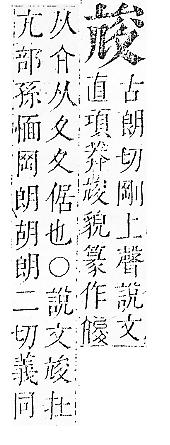 𡕧
古朗切剛上聲說文
直項莽𡕧貌篆作
从夰从夊夊倨也○說文𡕧在
亢部孫愐岡朗胡朗二切義同